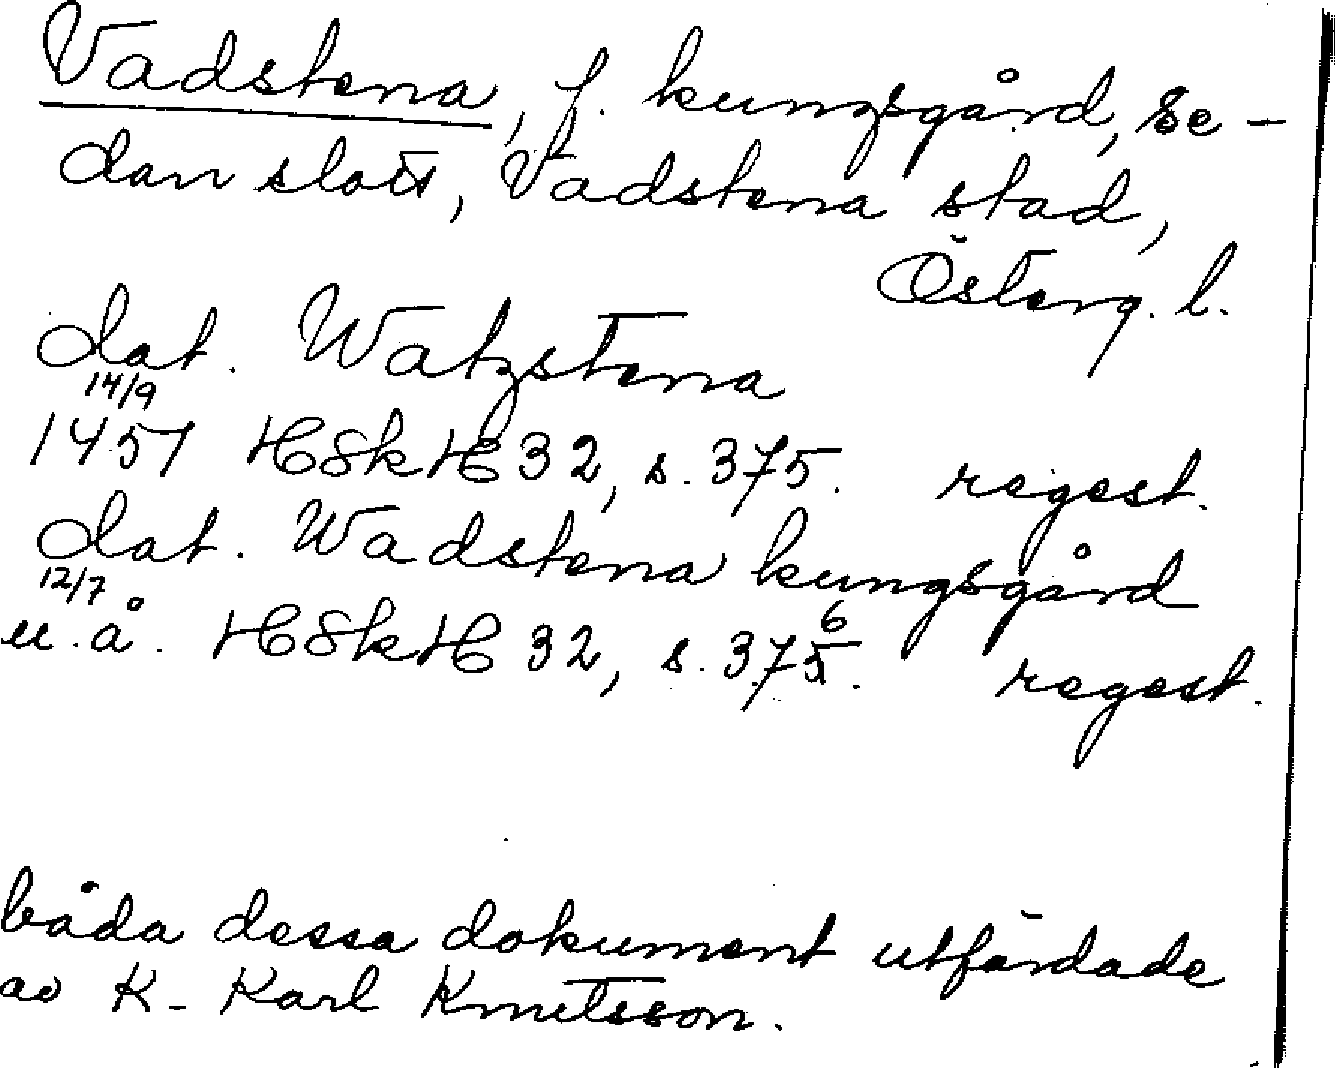 Vadstena, f. kungsgård, se-
dan slott, Vadstena stad,
Österg. l.
dat. Watzstena
14/9
1457 HSkH 32, s. 375. regest.
dat. Wadstena kungsgård
12/7
u.å. HSkH 32, s. 375. 6 regest.
båda dessa dokument utfärdade
av K. Karl Knutsson.